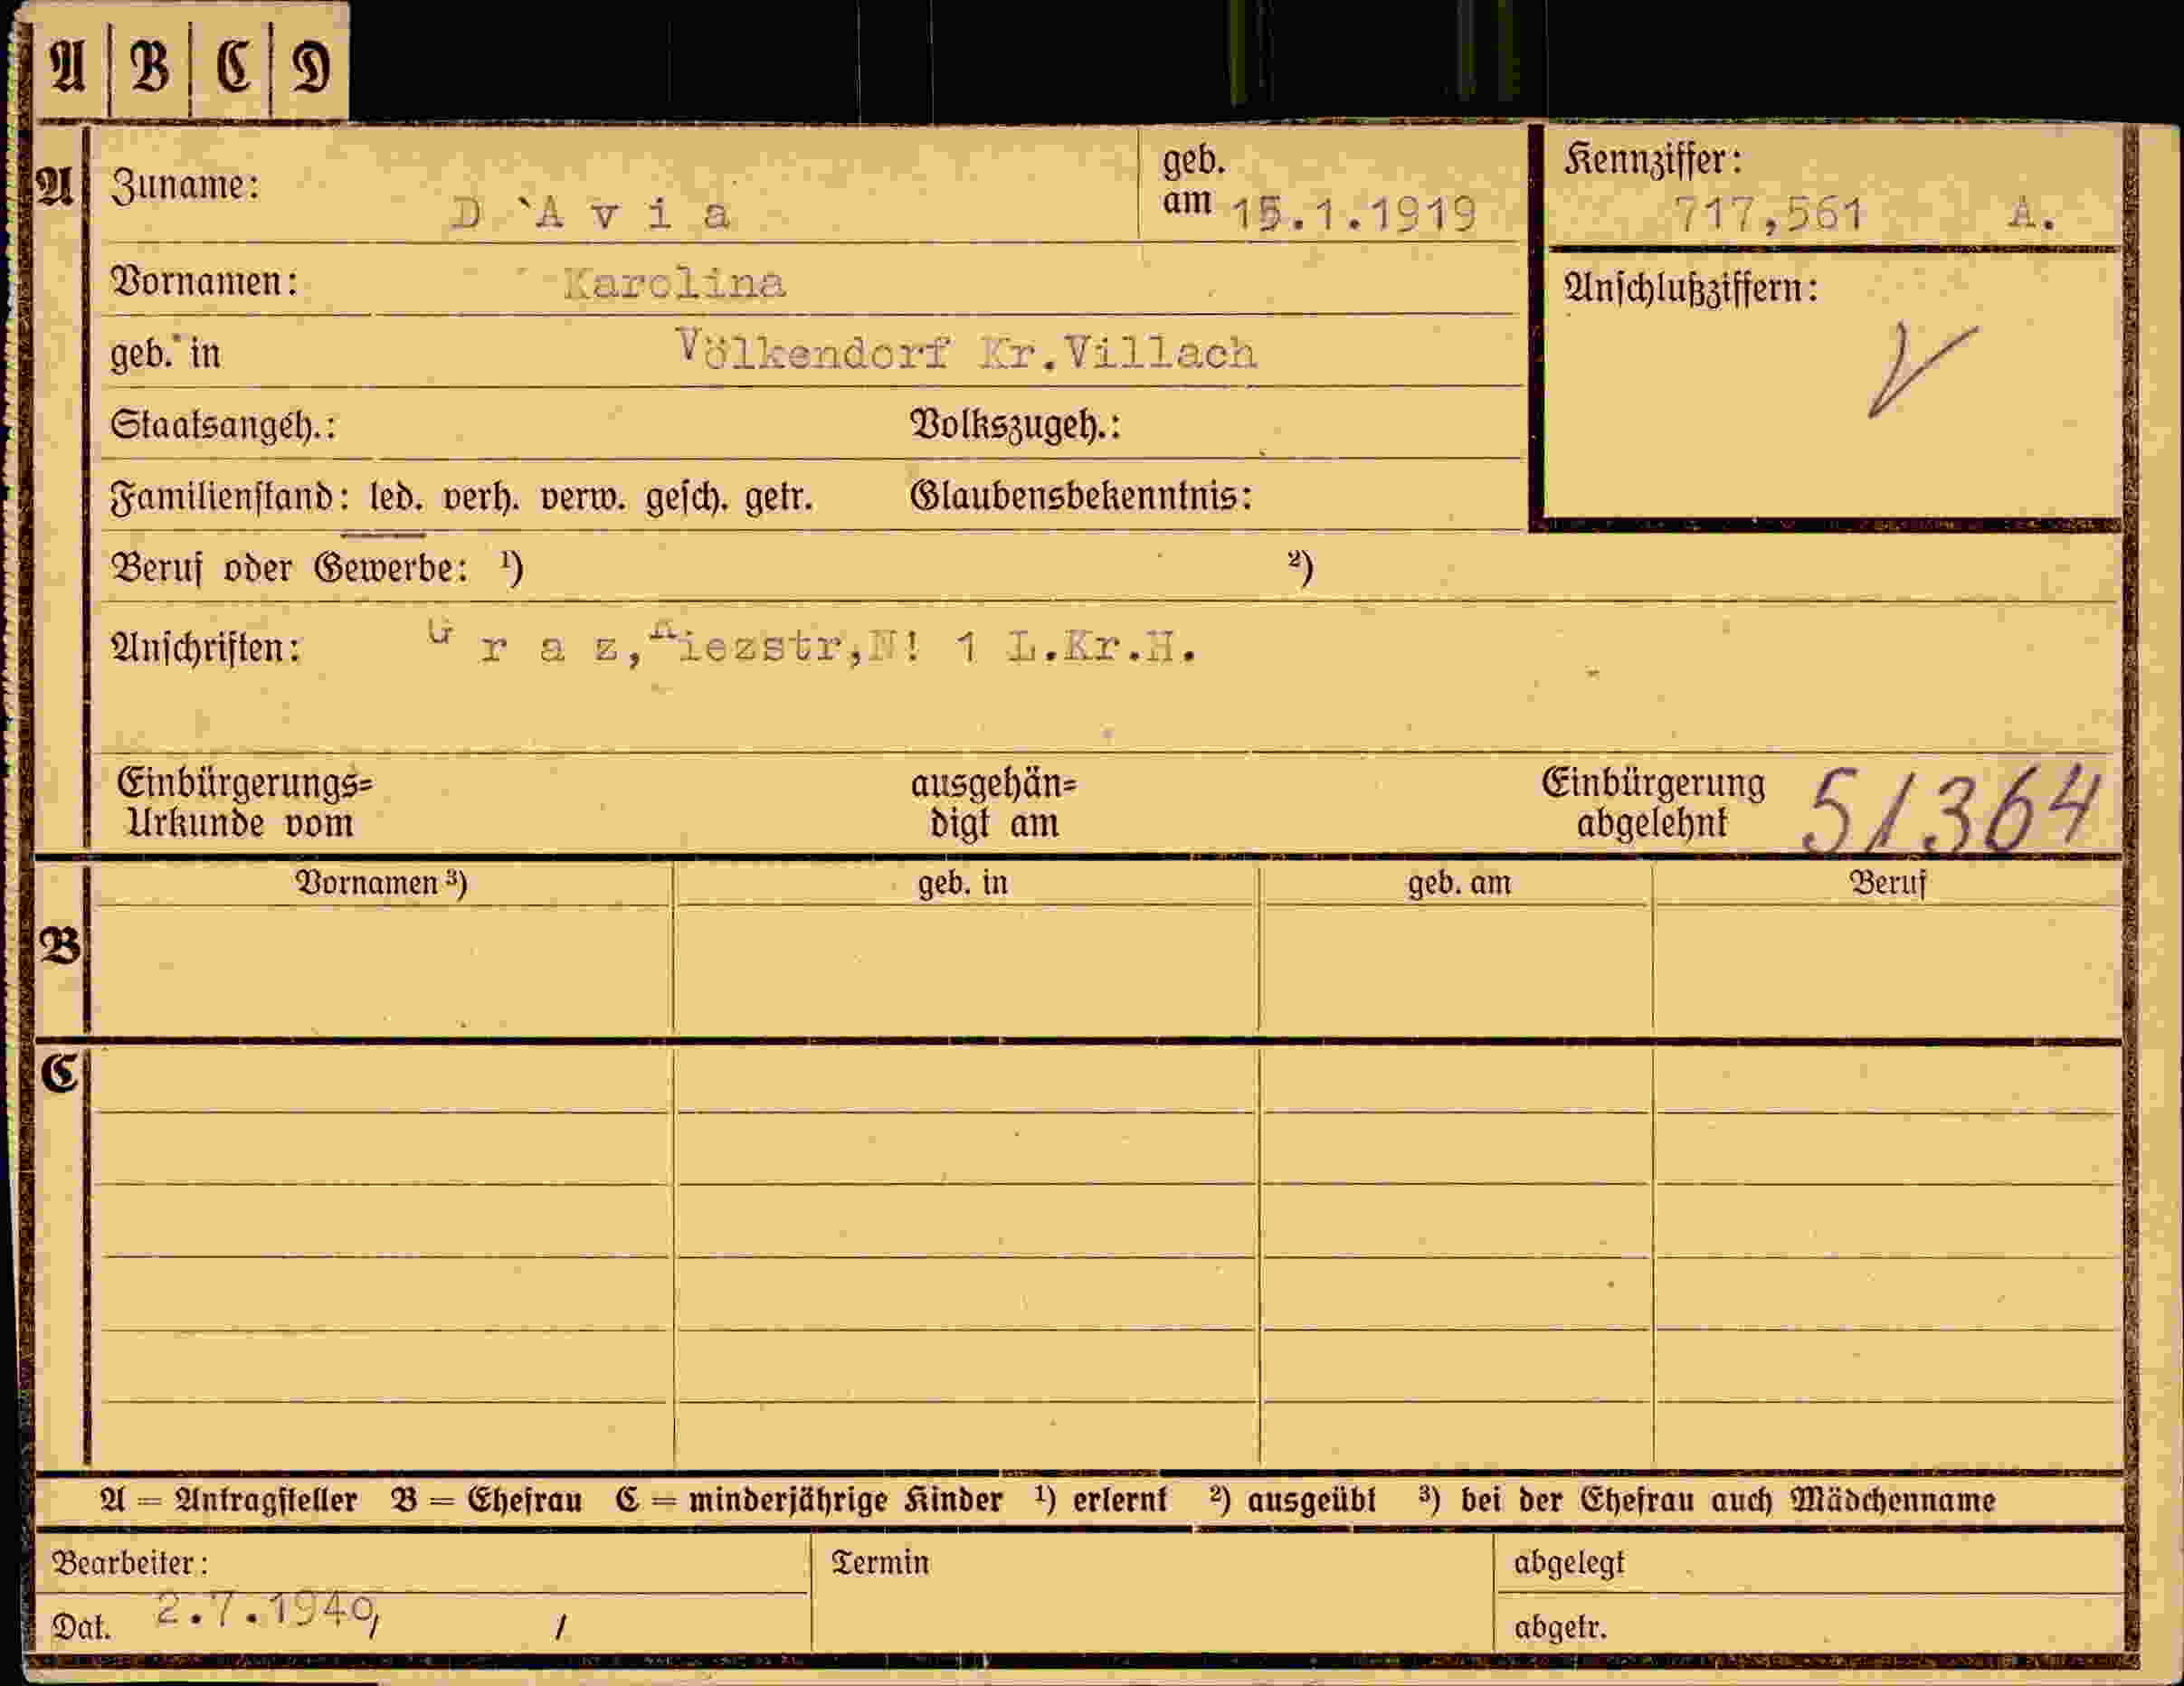 A B C D
A Zuname: D`Avia geb. am 15.1.1919 Kennziffer: 717,561 A.
Vornamen: Karolina
Anschlußziffern:
geb. in Völkendorf Kr.Villach
Staatsangeh.: Volkszugeh.:
Familienstand: led. verh. verw. gesch. getr. Glaubensbekenntnis:
Beruf oder Gewerbe: ¹) ²)
Anschriften: G r a z, 1 L.Kr.H.
Einbürgerungs= ausgehän= Einbürgerung 51364
Urkunde vom digt am abgelehnt
Vornamen ³) geb. in geb. am Beruf
B
C
A = Antragsteller B = Ehefrau C = minderjährige Kinder ¹) erlernt ²) ausgeübt ³) bei der Ehefrau auch Mädchenname
Bearbeiter: Termin abgelegt
Dat. 2.7.1940, / abgetr.